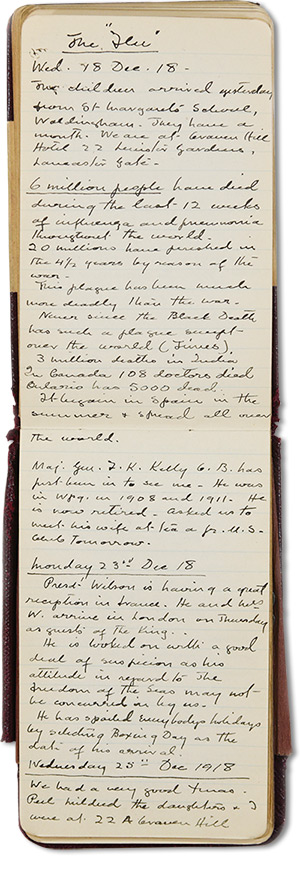 The "Flu"
Wed. 18 Dec. 18 -
The children arrived yesterday
from St Margarets School,
Waldingham. They have a
month. We are at Craven Hill
Hotel 22 Leinster Gardens,
Lancaster Gate -
6 million people have died
during the last 12 weeks
of influenza and pneumonia
throughout the world.
20 millions have perished in
the 4½ years by reason of the
war -
This plague has been much
more deadly than the war.
Never since the Black Death
has such a plague swept
over the world (Times),
3 million deaths in India
In Canada 108 doctors died
Ontario has 5000 dead.
It began in Spain in the
summer & spread all over
the world.
Maj. Gen. F. K. Kelly C. B. has
just been in to see me - He was
in Wpg. in 1908 and 1911 - He
is now retired - asked us to
meet his wife at tea at U.S.
Club tomorrow.
Monday 23rd Dec 18
Presdt Wilson is having a great
reception in France. He and Mrs
W. arrive in London on Thursday
as guests of the King..
He is looked on with a good
deal of suspicion as his
attitude in regard to the
freedom of the Seas may not
be concurred in by us -
He has spoiled everybodys holidays
by selecting Boxing Day as the
date of his arrival.
Wednesday 25th Dec 1918
We had a very good Xmas.
Peel Mildred the daughters & I
were at 22 A Craven Hill